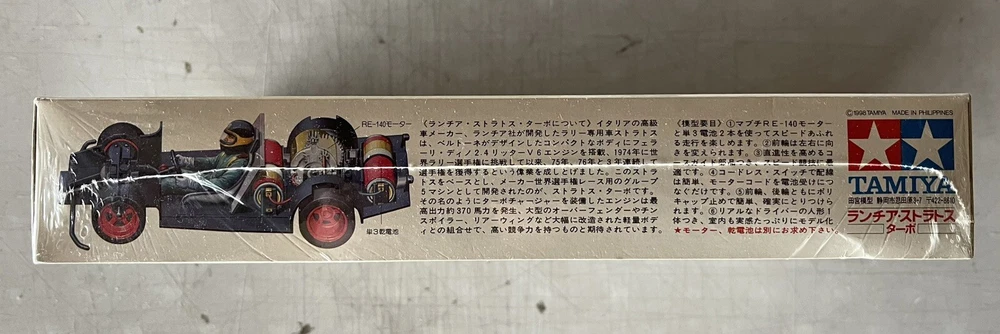 RE-140モーター
単3乾電池
〈ランチア・ストラトス・ターボについて〉イタリアの高級
車メーカー、ランチア社が開発したラリー専用車ストラトス
は、ベルトーネがデザインしたコンパクトなボディにフェラ
ーリ・ディノ24リッターV6エンジンを搭載、1974年に世
界ラリー選手権に挑戦して以来、75年、76年と3年連続して
選手権を獲得するという偉業を成しとげました。このストラ
トスをベースとし、メーカー世界選手権レース用のグループ
5マシンとして開発されたのが、ストラトス・ターボです。
その名のようにターボチャージャーを装備したエンジンは最
高出力約370馬力を発生、大型のオーバーフェンダーやチン
スポイラー、リヤーウィングなど大幅に改造された軽量ボデ
ィとの組合せで、高い競争力を持つものと期待されています。
〈模型要目〉①マブチRE-140モーター
と単3電池2本を使ってスピードあふれ
る走行を楽しめます。②前輪は左右に向
きを変えられます。③直進性を高めるコ
適です。④コードレス・スイッチで配線
は簡単、モーターコードを電池受けにつ
なぐだけです。⑤前輪、後輪ともにポリ
キャップ止めで簡単、確実にとりつけら
れます。⑥リアルなドライバーの人形1
体つき、室内も実感たっぷりにモデル化
★モーター、乾電池は別にお求め下さい。
©1998 TAMIYA MADE IN PHILIPPINES
TAMIYA
田宮模型 静岡市恩田原3-7 〒422-8610
ランチア・ストラトス
ターボ